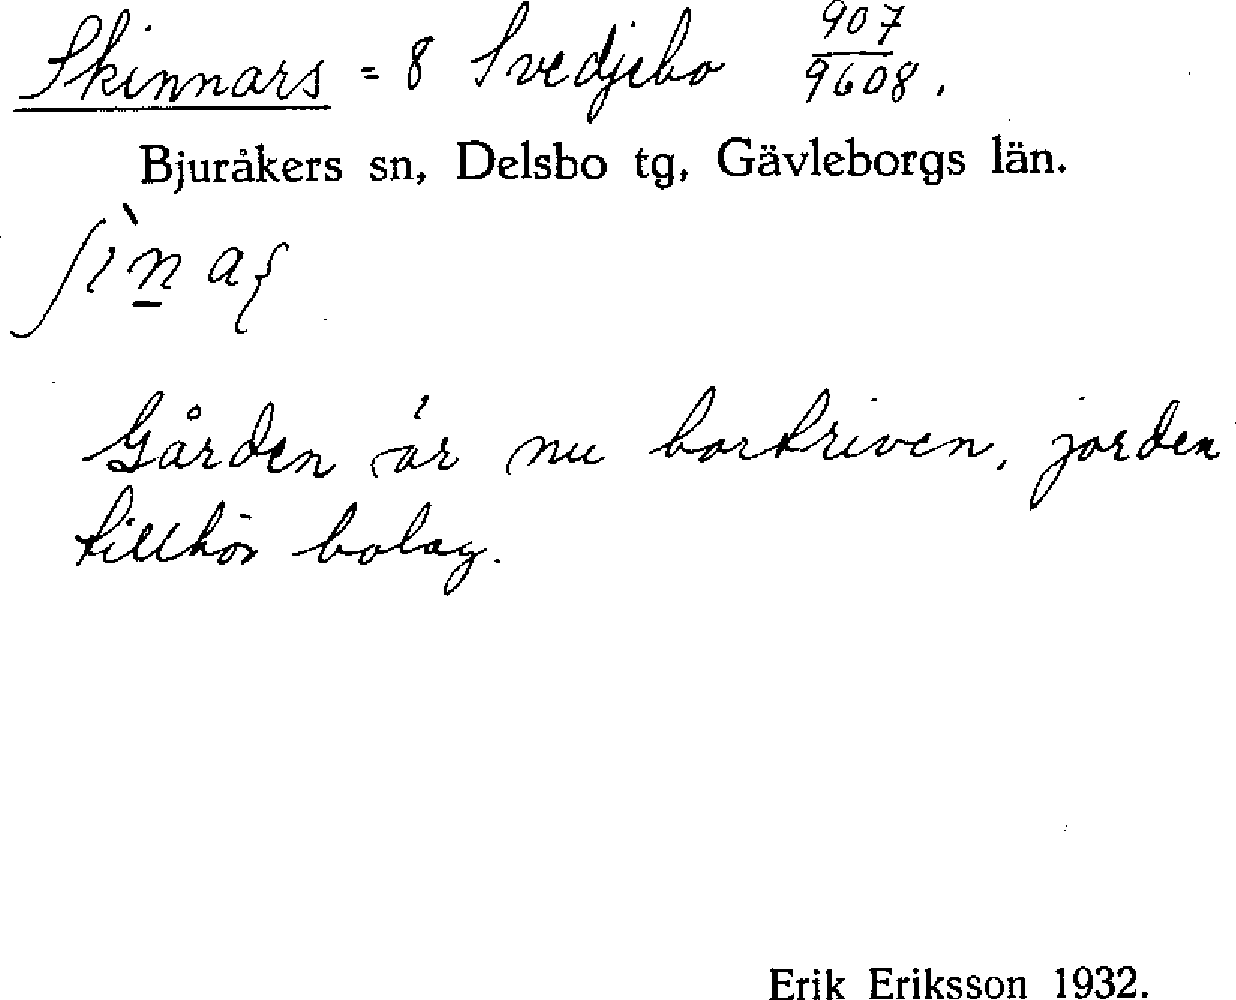 Skinnars = 8 Svedjebo 907/9608.
Bjuråkers sn, Delsbo tg, Gävleborgs län.
Gården är nu bortriven, jorden
tillhör bolag.
Erik Eriksson 1932.